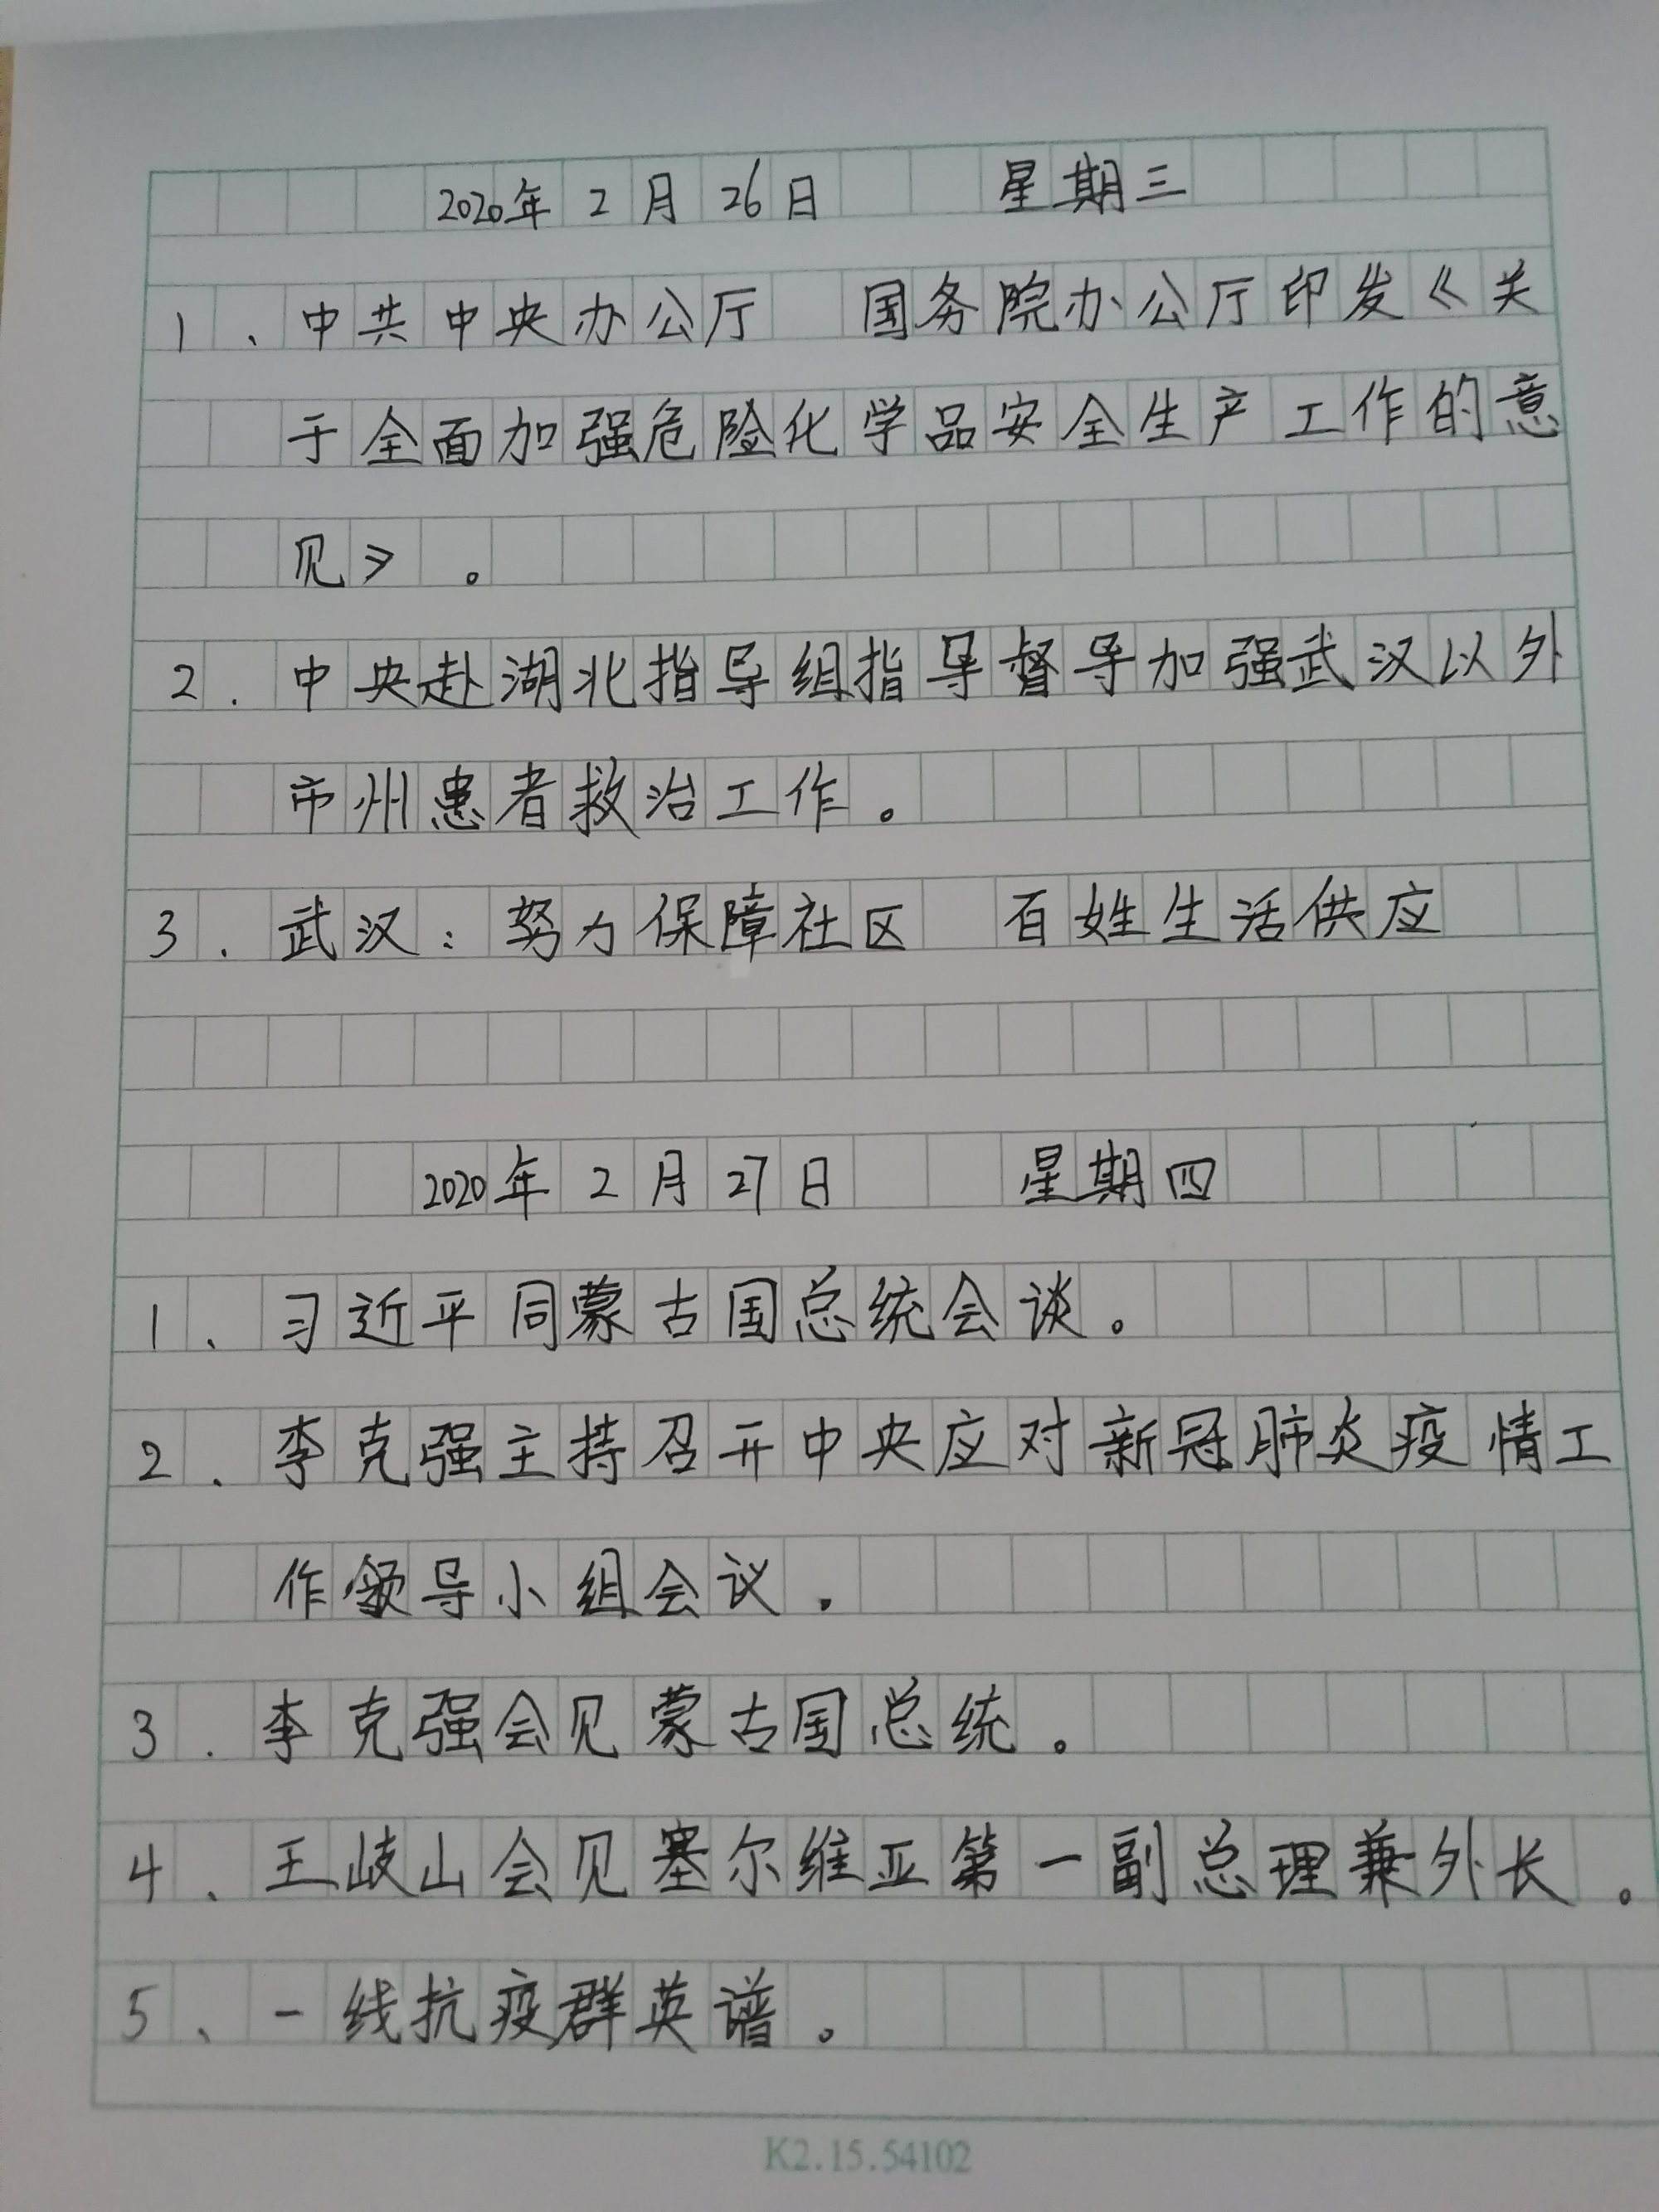 2020年2月26日 星期三
1、中共中央办公厅 国务院办公厅印发《关
于全面加强危险化学品安全生产工作的意
见》。
2.中央赴湖北指导组指导督导加强武汉以外
市州患者救治工作。
3.武汉:努力保障社区 百姓生活供应
2020年2月27日 星期四
1、习近平同蒙古国总统会谈。
2、李克强主持召开中央应对新冠肺炎疫情工
作领导小组会议.
3.李克强会见蒙古国总统。
4、王岐山会见塞尔维亚第一副总理兼外长。
5、一线抗疫群英谱。
K2.15.54102